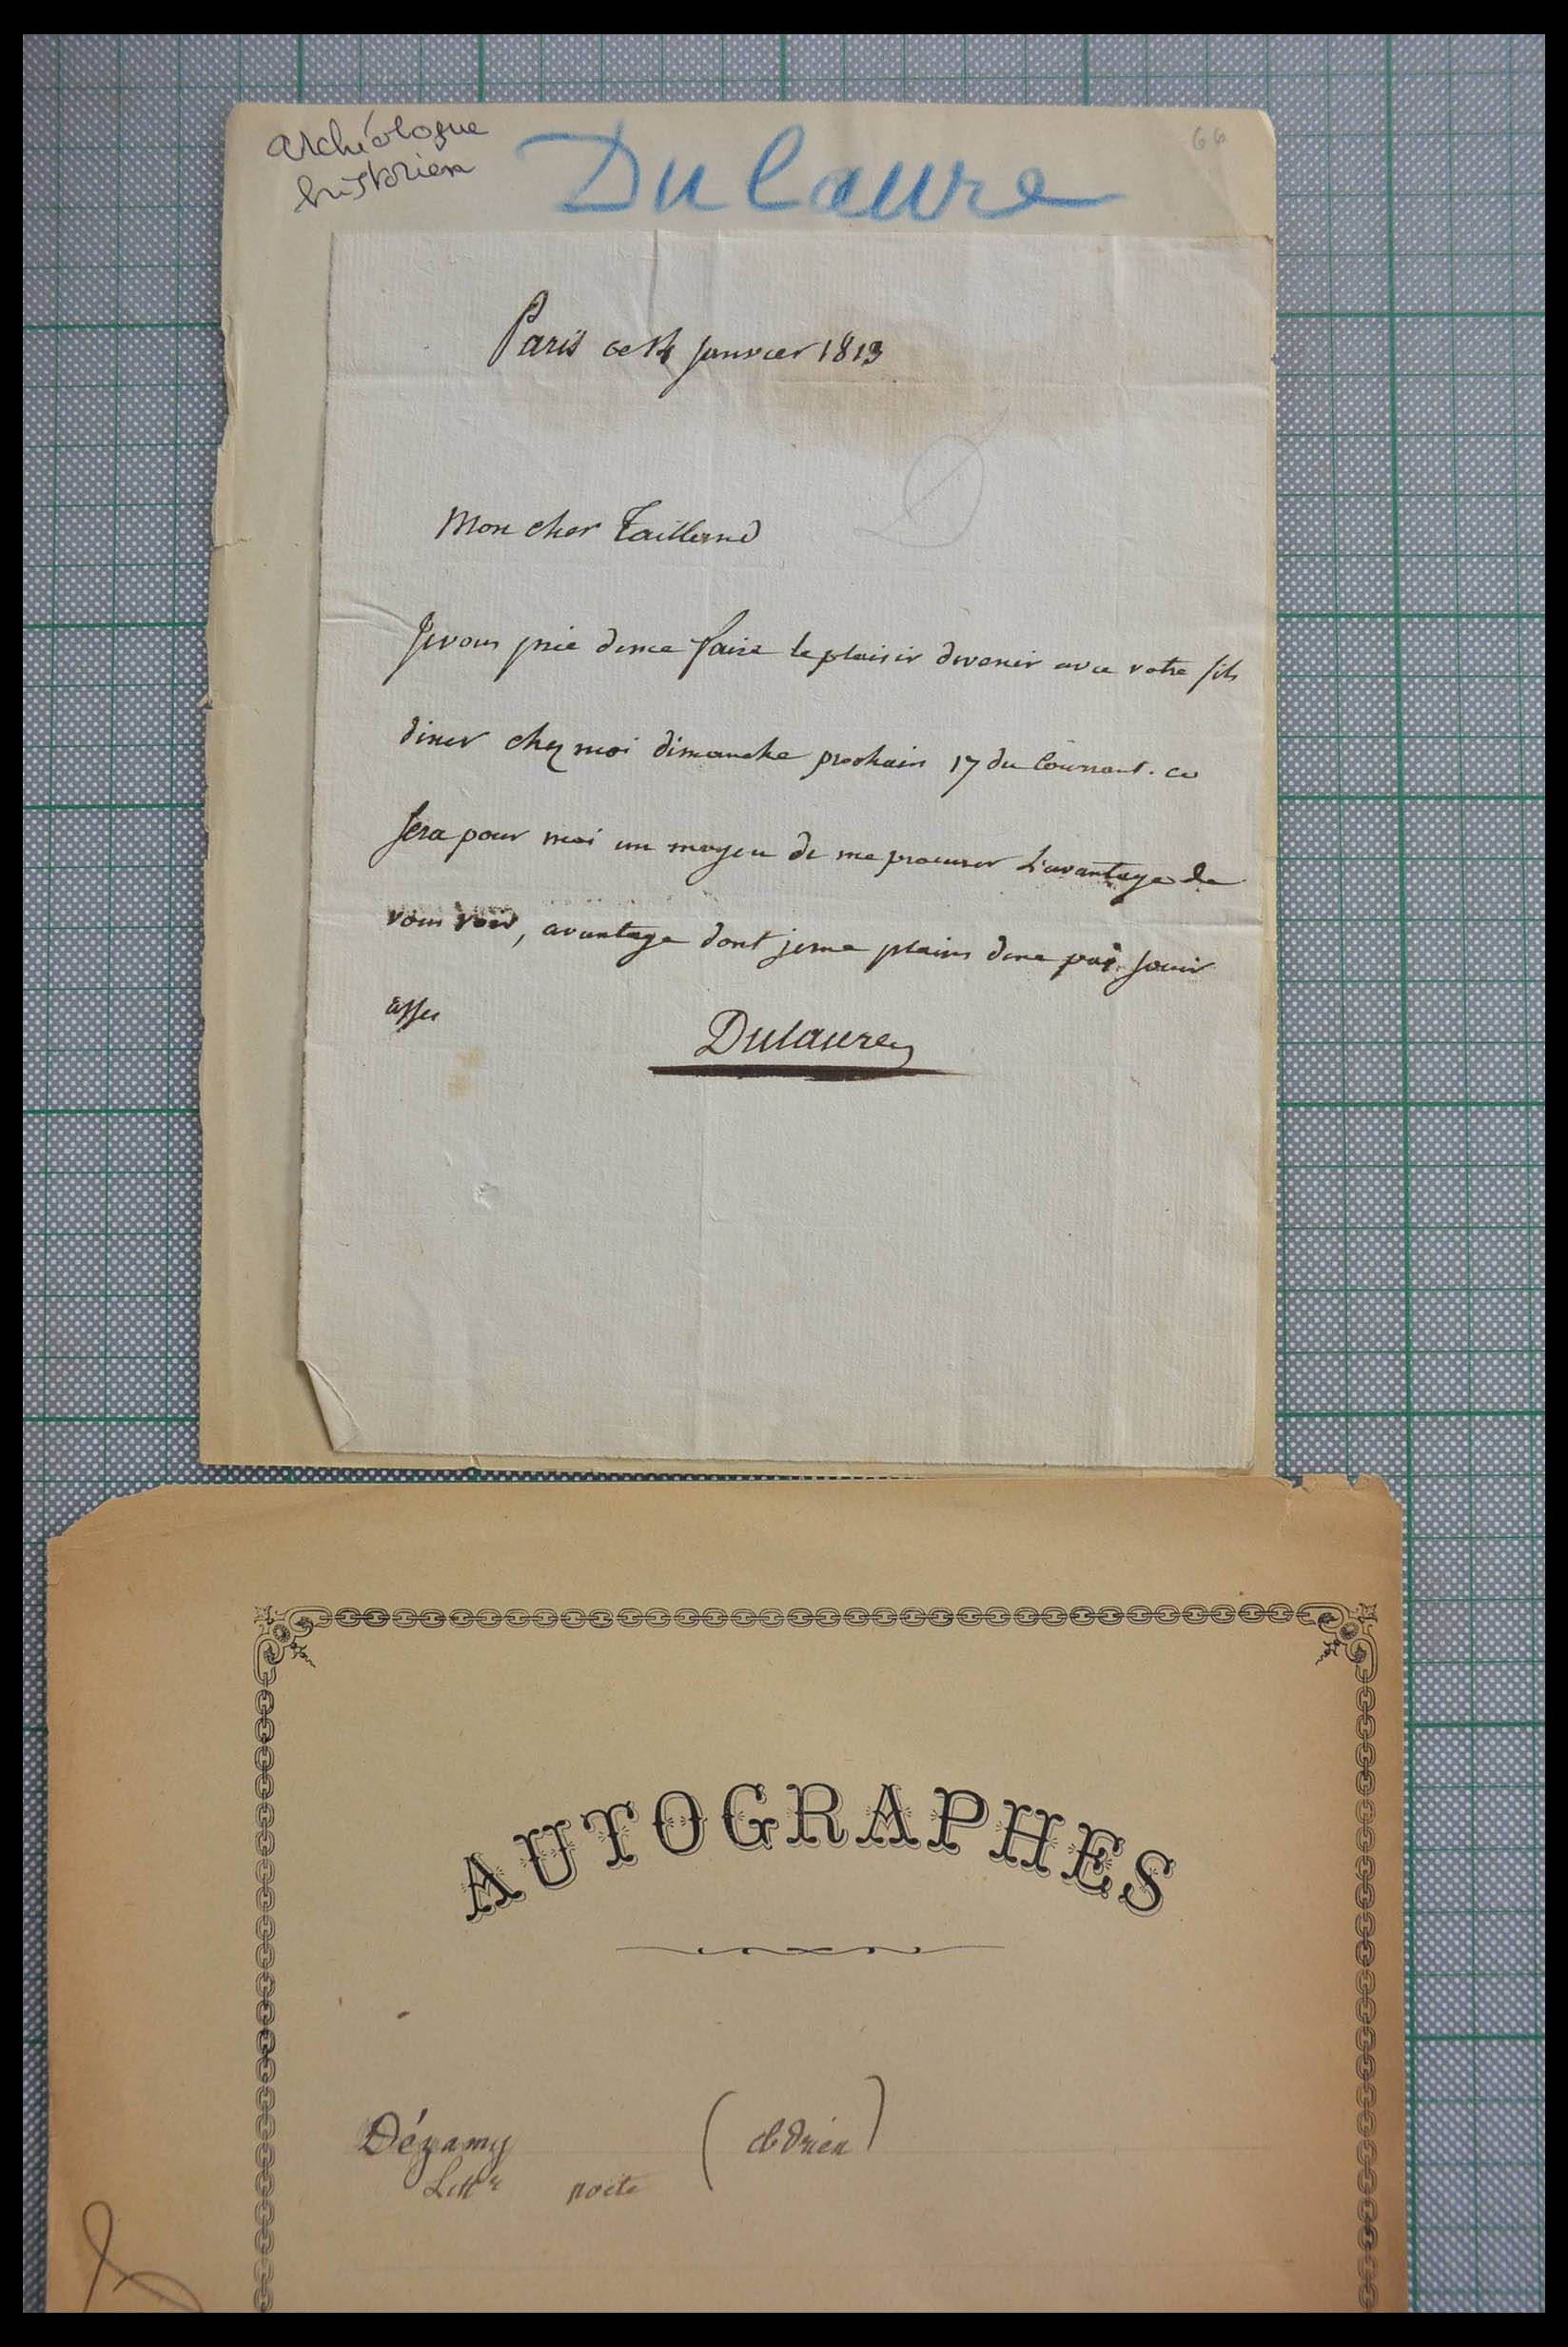 archéologue
historien
Dulaure
66
Paris ce 14 janvier 1813
Mon cher Tailland
Je vous prie de me faire le plaisir de venir avec votre fils
diner chez moi dimanche prochain 17 du Courrant. ce
Sera pour moi un moyen de me procurer L'avantage de
vous voir, avantage dont je me plains de ne pas Jouir
assez
Dulaure
AUTOGRAPHES
Dézamy (Adrien)
Littre poète